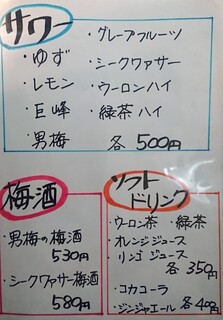 サワー
・ゆず
・レモン
・巨峰
・男梅
・グレープフルーツ
・シークワァサー
・ウーロンハイ
・緑茶ハイ
各500円
梅酒
・男梅の梅酒
530円
・シークワァサー梅酒
580円
ソフト
ドリンク
・ウーロン茶 ・緑茶
・オレンジジュース
・リンゴジュース
各350円
・コカコーラ
・ジンジャエール 各400円